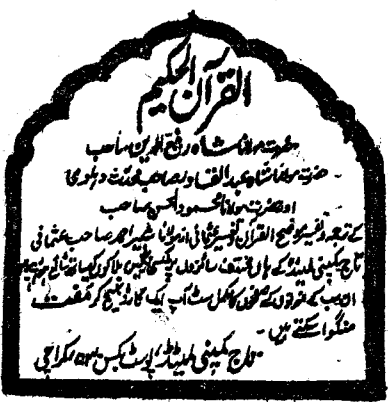 القرآن الحکیم
حضرت مولانا شاہ رفیع الدین صاحب
حضرت مولانا شاہ عبدالقادر صاحب محدث دہلوی
اور حضرت مولانا محمود الحسن صاحب
کے ترجمہ و تفسیر موضح القرآن و تفسیر عثمانی از مولانا شبیر احمد صاحب عثمانی
تاج کمپنی لمیٹڈ کے ہاں مختلف سائزوں میں رنگین بلاکوں کیساتھ شائع
ان سب کے نمونوں کے صفحوں کا مکمل سٹ آپ ایک کارڈ بھیج کر مفت
منگوا سکتے ہیں۔
تاج کمپنی لمیٹڈ، پوسٹ بکس کراچی